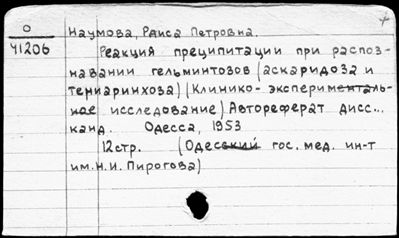 О
41206
Наумова, Раиса Петровна.
Реакция преципитации при распоз-
навании гельминтозов (аскаридоза и
тениаринхоза) (Клинико- эксперименталь-
ное исследование) Автореферат дисс...
канд. Одесса, 1953
12стр. (Одесский гос. мед. ин-т
им. Н. И. Пирогова)